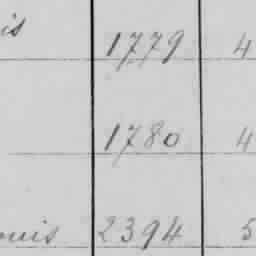 is 1779 4
1780 4
ouis 2394 5